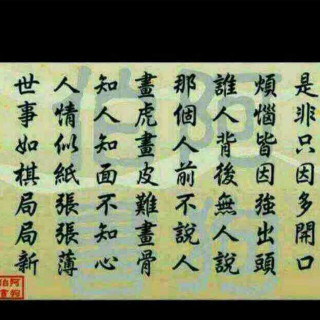 是非只因多開口
煩惱皆因強出頭
誰人背後無人說
那個人前不說人
畫虎畫皮難畫骨
知人知面不知心
人情似紙張張薄
世事如棋局局新
阿狗
伯書